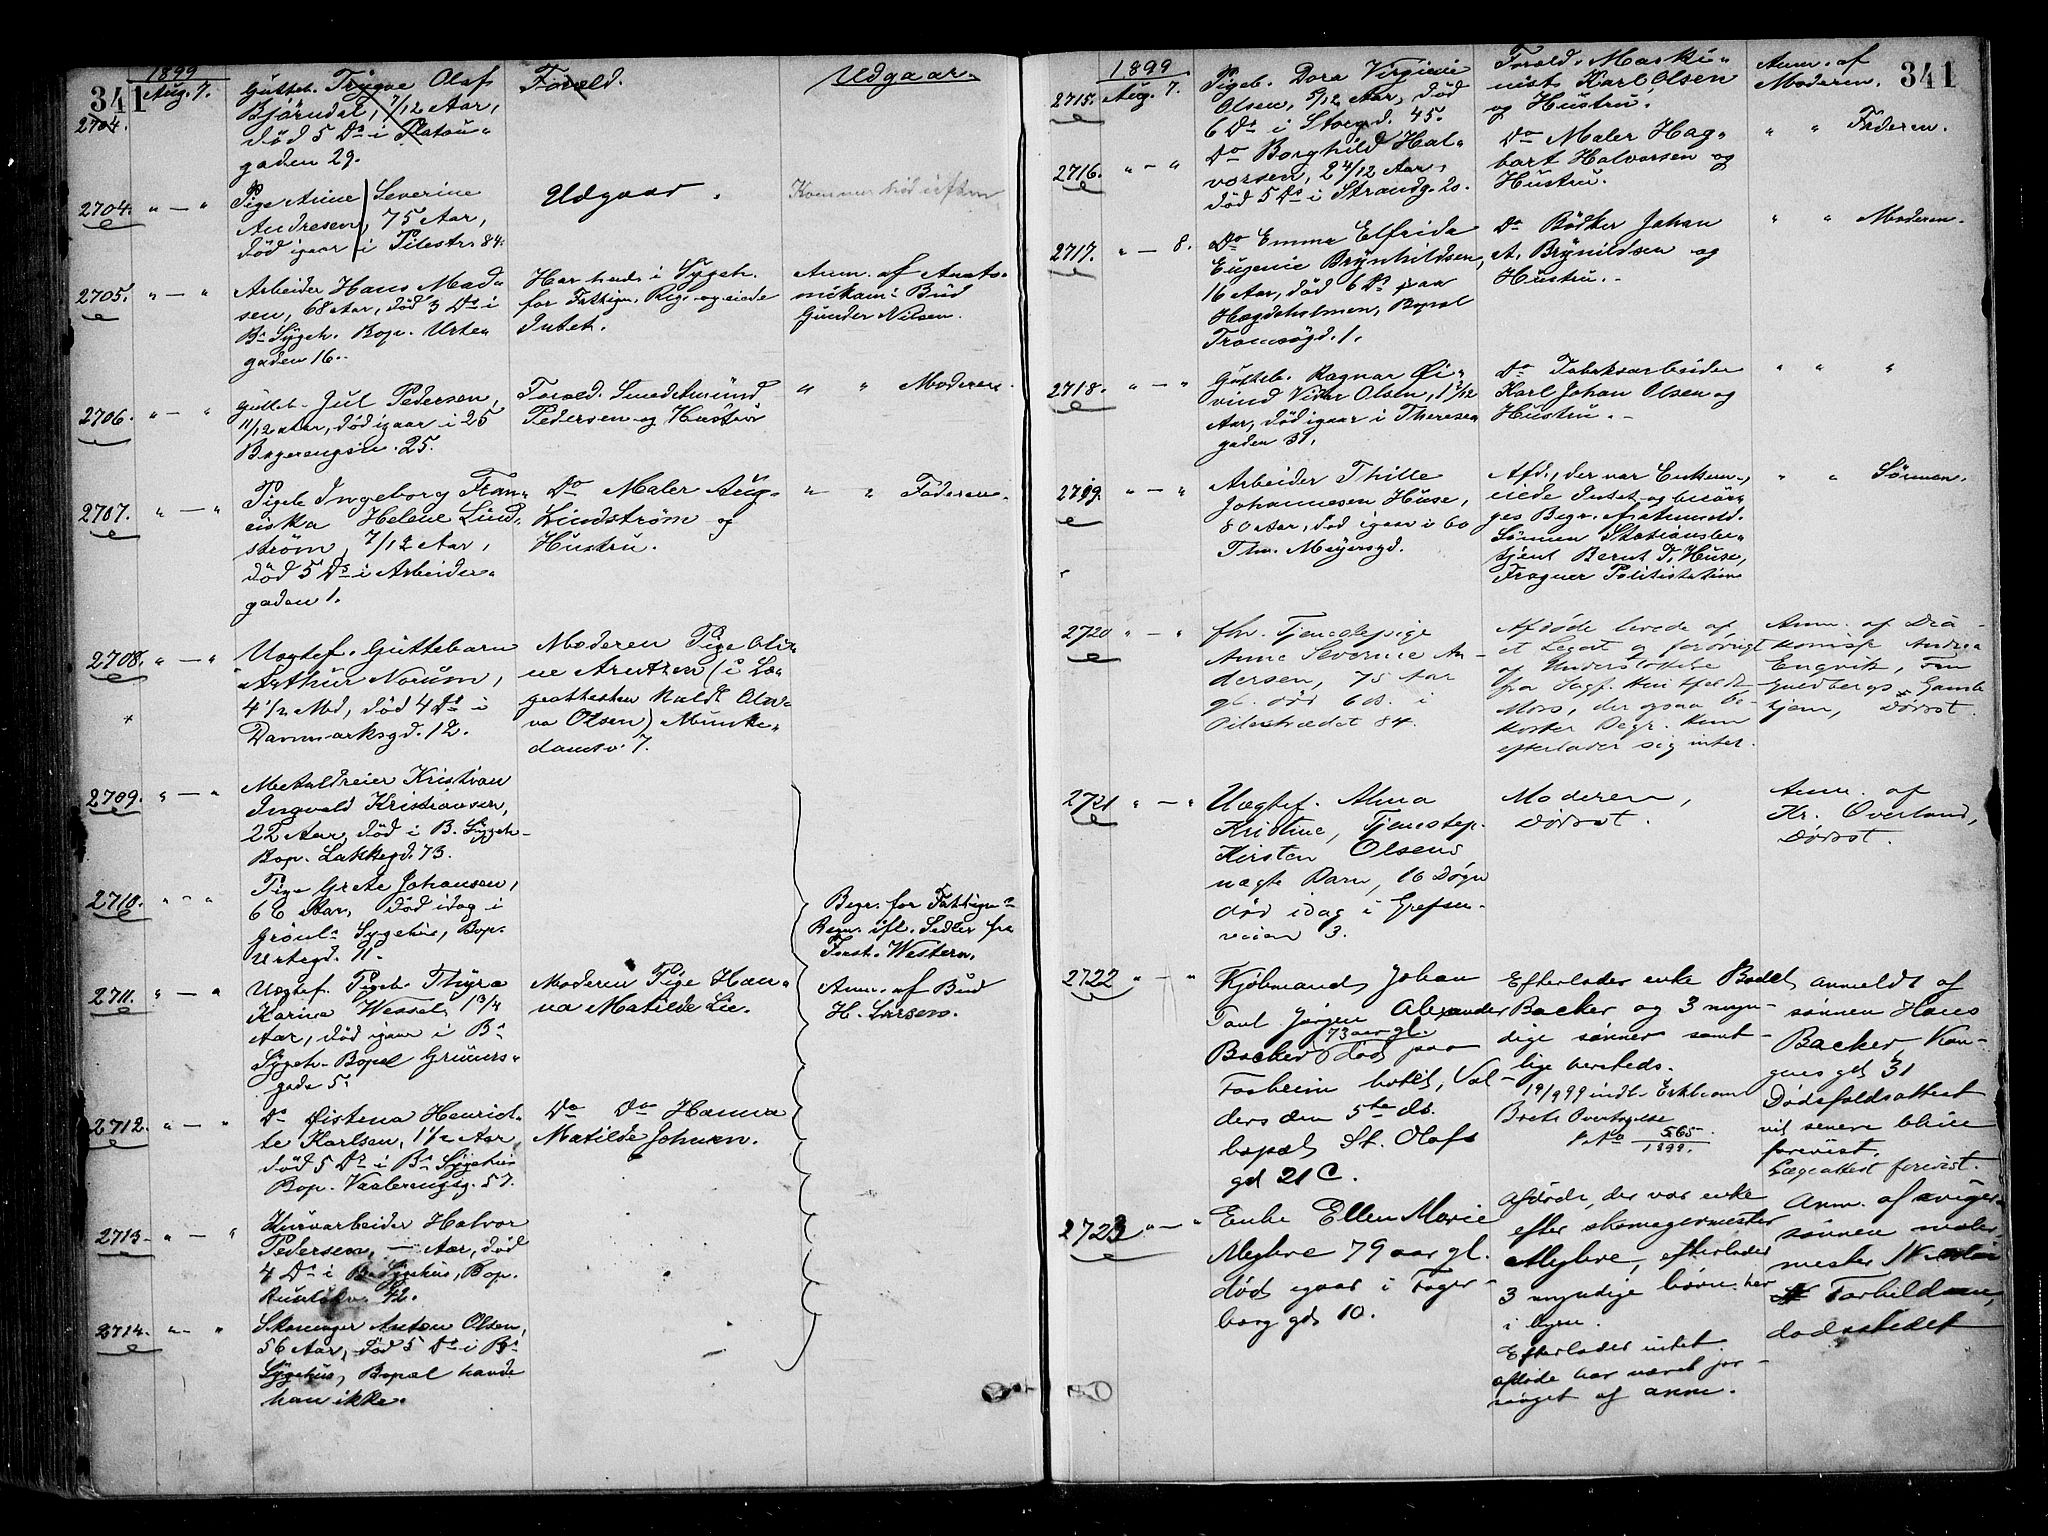 341
1899
Aug. 7.
2704.
Gutteb. Trygve Olaf
Bjørndal, 7/12 Aar,
død 5 Ds i Platou-
gaden 29.
Foræld.
Udgaar.
2704. " — "
Pige Anne Severine
Andresen, 75 Aar,
død igaar i Pilestr. 84.
Udgaar.
Kommer ned
2705. " — "
Arbeider Hans Mad-
sen, 68 Aar, død 3 Ds i
Bs Sygeh. Bop. Urte-
gaden 16.
Har havt i Sygeh.
for Fattigv. Regn. og eiede
Intet.
Anm. af
Bud
Gunder Nilsen.
2706. " — "
Gutteb. Jul Pedersen,
11/12 Aar, død igaar i 25
25.
Foræld. Smed
Pedersen og Hustru
" " Moderen.
2707. " — "
Pigeb. Ingeborg Fran-
ciska Helene Lind-
strøm, 7/12 Aar,
død 5 Ds i Arbeider-
gaden 1.
Do Maler Aug.
Lindstrøm og
Hustru.
" " Faderen.
2708. " — "
Uægtef. Guttebarn
Arthur Norum,
4 1/2 Md, død 4 Ds i
Danmarksgd. 12.
Moderen Pige Oli-
ne Arntzen (i Læ-
geattesten kaldt
Olsen) Munke-
damsv. 7.
2709. " — "
Metaldreier Kristian
Ingvald Kristiansen,
22 Aar, død i B. Sygeh.
Bop. Lakkegd. 73.
2710. " — "
Pige Grete Johansen,
Aar, død idag i
Grønl. Sygehus, Bop.
Urtegd. 11.
Begr. for Fattigv.
Regn. ifl. Sedler fra
Forst. Western.
2711. " — "
Uægtef. Pigeb. Thyra
Karina Wessel, 1 3/4
Aar, død igaar i Bs
Sygeh. Bopæl Grüners-
gade 5.
Moderen Pige Han-
na Matilde Lie.
Anm. af Bud
H. Larsen.
2712. " — "
Do Østena Henriet-
te Karlsen, 1 1/2 Aar,
død 5 Ds i Bs Sygehus
Bop. Vaalerengsg. 57.
Do Do Hanna
Matilde Johnsen.
2713. " — "
Murarbeider Halvor
Pedersen, — Aar, død
4 Ds i Bs Sygehus, Bop.
42.
2714. " — "
Skomager Anton Olsen,
56 Aar, død 5 Ds i Bs
Sygehus, Bopæl havde
han ikke.
1899
341
2715. Aug. 7.
Pigeb. Dora Virginie
Olsen, 5/12 Aar, død
6 Ds i Storgd. 45.
Foræld. Maski-
nist Karl Olsen
og Hustru.
Anm. af
Moderen.
2716. " — "
Do Borghild Hal-
vorsen, 2 4/12 Aar,
død 5 Ds i Strandg. 20.
Do Maler Hag-
bart Halvorsen og
Hustru.
" " Faderen.
2717. " — 8.
Do Emma Elfrida
Eugenie Brynhildsen,
16 Aar, død 6 Ds paa
Hægdeholmen, Bopæl
Tromsøgd. 1.
Do Bødker Johan
A. Brynildsen og
Hustru.
" " Moderen.
2718. " — "
Gutteb. Ragnar Øi-
vind Vidar Olsen, 1 2/12
Aar, død igaar i Therese-
gaden 31.
Do Tobaksarbeider
Karl Johan Olsen og
Hustru.
" " "
2719. " — "
Arbeider Thille
Johannesen Huse,
80 Aar, død igaar i 60
Thv. Meyersgd.
Afd., der var Enkem.,
eiede Intet og besør-
ges Begr. af
Sønnen Stationsbe-
tjent Bernt T. Huse,
Frogner Politistation
" " Sønnen.
2720 " — "
fhv. Tjenestepige
Anne Severine An-
dersen, 75 Aar
gl. død 6 ds. i
Pilestrædet 84.
Afdøde levede af
et Legat og forøvrigt
af Understøttelse
fra Sagf. Huitfeldt
Mors, der ogsaa be-
koster Begr. Hun
efterlader sig intet.
Anm. af Dia-
konisse Andrea
Engvik, Fru
Guldbergs Gamle-
hjem, Dødsst.
2721 " — "
Uægtef. Alma
Kristine, Tjenestep.
Kirsten Olsens
uægte Barn, 16 Døgn
død idag i Grefsen-
veien 3.
Moderen,
Dødsst.
Anm. af
Kr. Overland,
Dødsst.
2722 " — "
Kjøbmand Johan
Paul Jørgen Alexander
Backer 73 aar gl. død paa
Fosheim hotel, Val-
ders den 5te ds.
bopæl St. Olafs
gd 21 C.
Efterlader enke Bodil
Backer og 3 myn-
dige sønner samt-
lige hersteds.
19/9 99 indt.
No 565/1899.
anmeldt af
sønnen Hans
Backer Kon-
gens gd 31
Dødsfaldsattest
vil senere blive
forevist.
Lægeattest forevist.
2723 " — "
Enke Ellen Marie
Myhre 79 aar gl.
død igaar i Fager-
borg gd 10.
Afdøde, der var enke
efter skomagermester
Myhre, efterlader
3 myndige børn her
i byen.
Efterlader intet.
afdøde har været for-
sørget af anm.
Anm. af sviger-
sønnen maler-
mester
Torkildsen,
dødsstedet